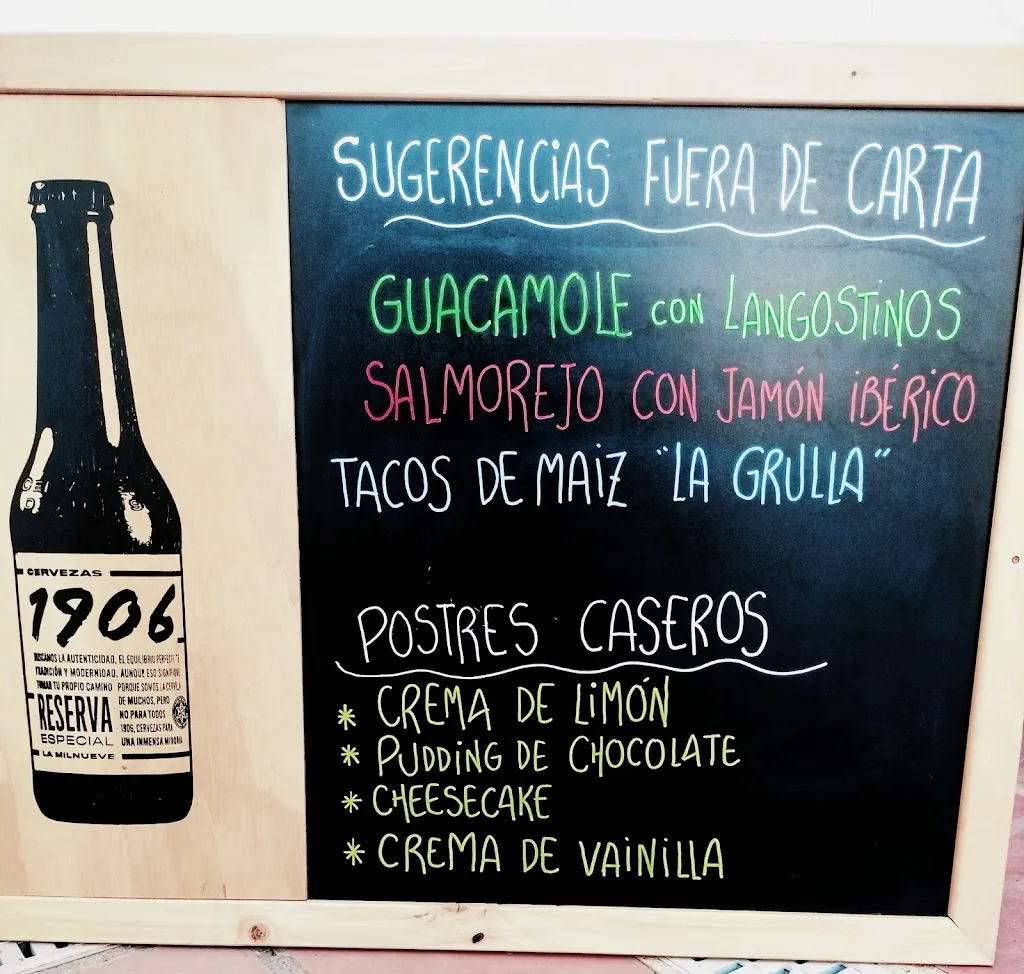 SUGERENCIAS FUERA DE CARTA
GUACAMOLE CON LANGOSTINOS
SALMOREJO CON JAMÓN IBÉRICO
TACOS DE MAIZ "LA GRULLA"
POSTRES CASEROS
* CREMA DE LIMÓN
* PUDDING DE CHOCOLATE
* CHEESECAKE
* CREMA DE VAINILLA
CERVEZAS
1906
BUSCAMOS LA AUTENTICIDAD, EL EQUILIBRIO
TRADICIÓN Y MODERNIDAD. AUNQUE ESO
TOMAR TU PROPIO CAMINO PORQUE SOMOS LA
RESERVA
ESPECIAL
DE MUCHOS, PERO
NO PARA TODOS
1906, CERVEZAS PARA
UNA INMENSA
LA MILNUEVE